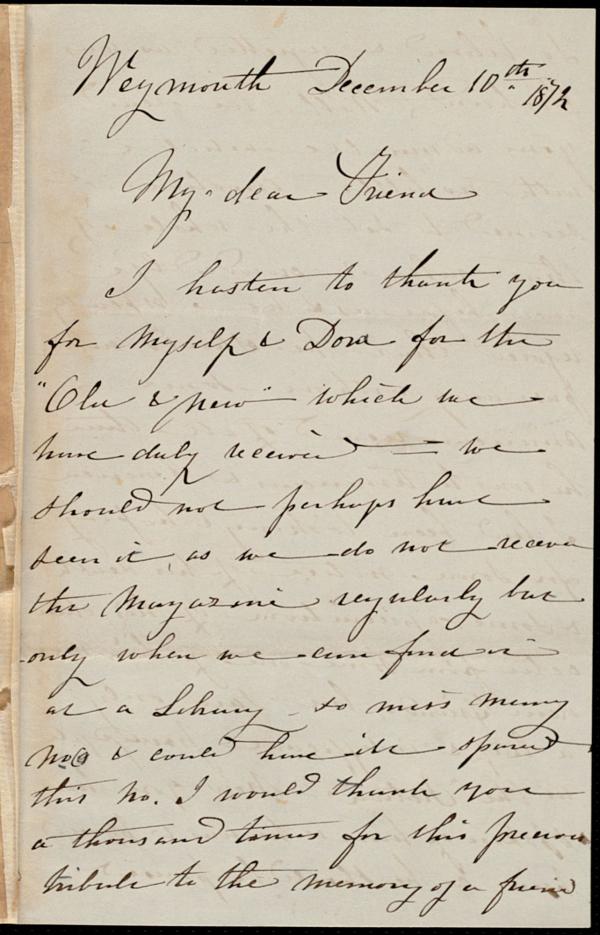 Weymouth December 10th 1872
My dear Friend
I hasten to thank you
for myself & Dora for the
"Old & new" which we
have duly received = we
should not perhaps have
seen it, as we do not receive
the Magazine regularly but
only when we can find it
at a Library - so miss many
nos & could have spared
this no. I would thank you
a thousand times for this precious
tribute to the memory of a friend